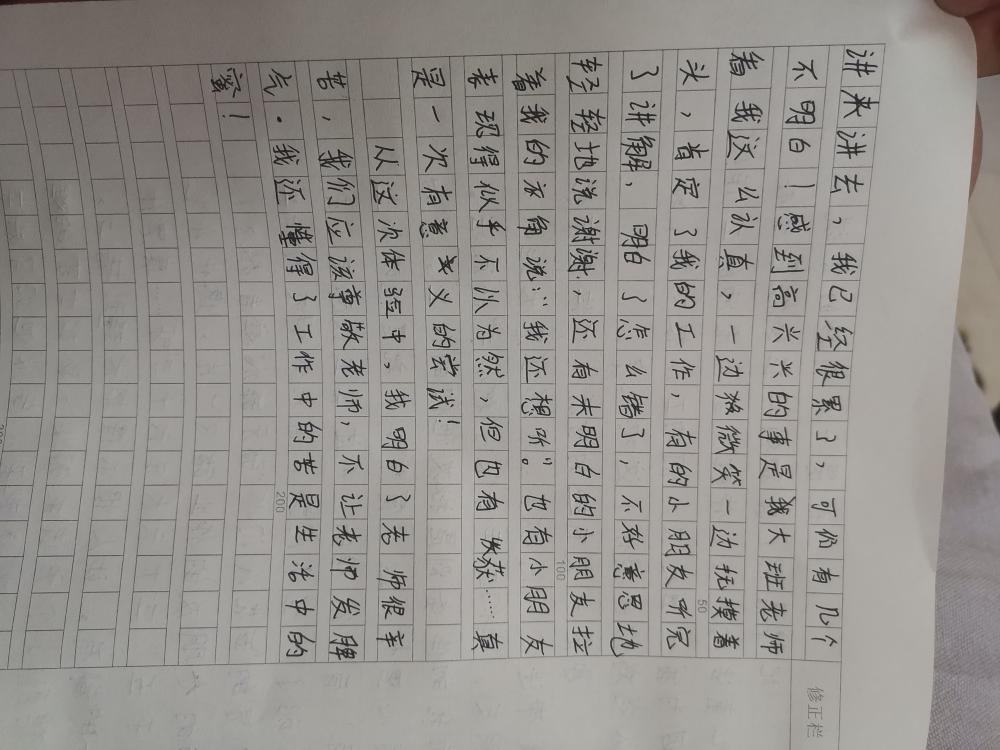 讲来讲去，我已经很累了，可仍有几个
不明白！感到高兴兴的事是我大班老师
看我这么认真，一边微笑一边抚摸着
头，肯定了我的工作，有的小朋友听完
了讲解，明白了怎么错了，不好意思地
轻轻地说谢谢，还有未明白的小朋友拉
着我的衣角说："我还想听"。也有小朋友
表现得似乎不以为然，但也有收获……真
是一次有意义的尝试！
从这次体验中，我明白了老师很辛
苦，我们应该尊敬老师，不让老师发脾
气。我还懂得了工作中的苦是生活中的
蜜！
50
100
200
修正栏